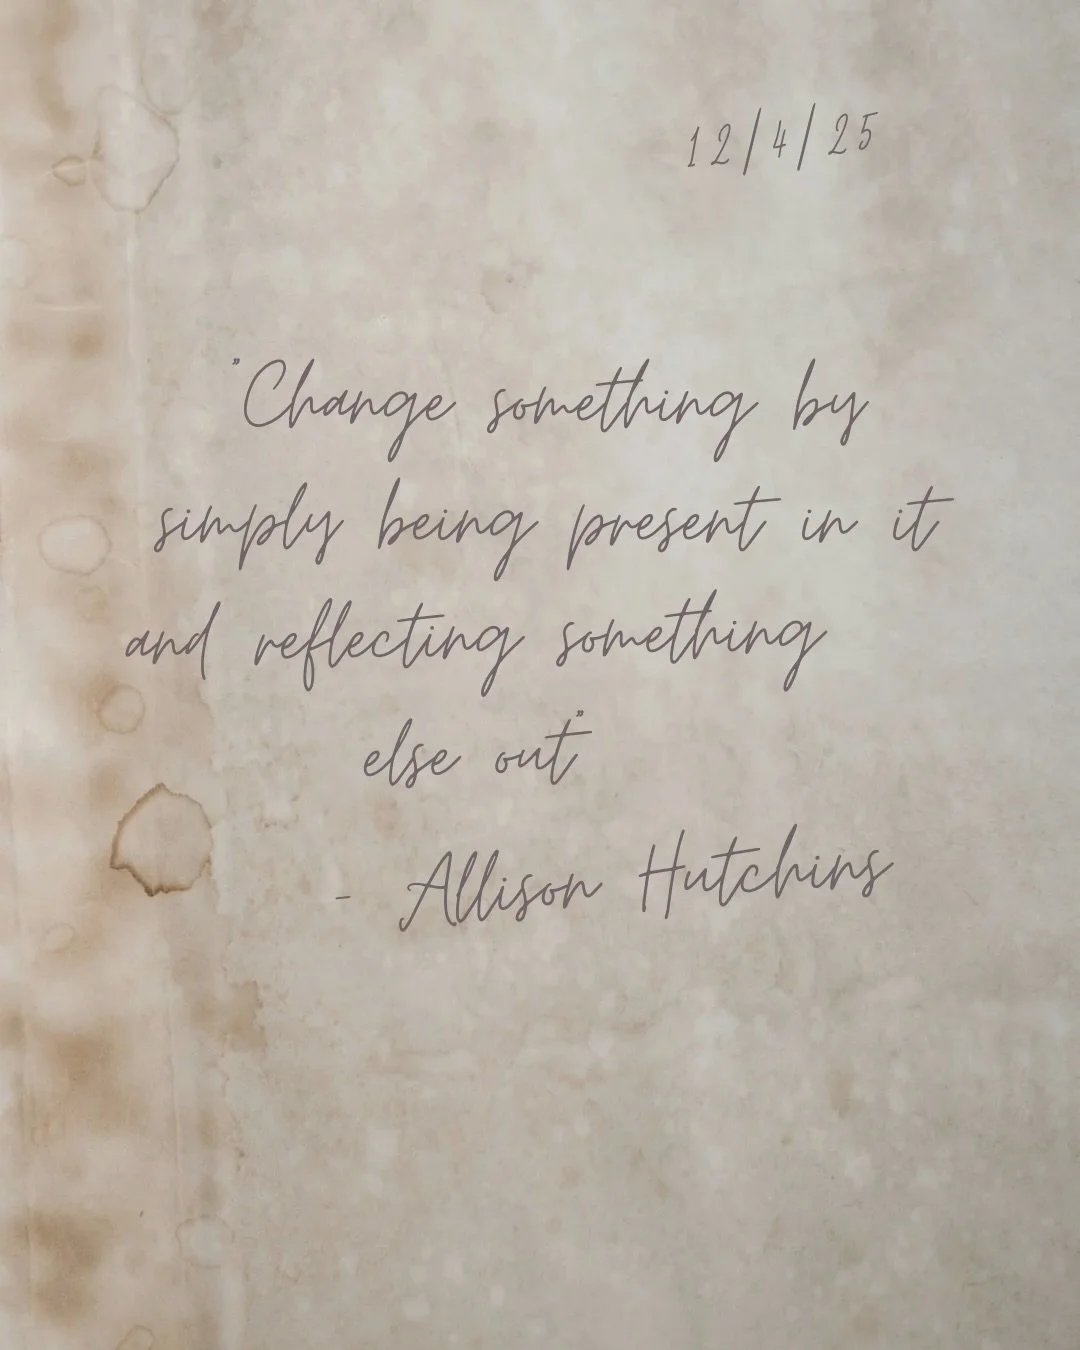 12/4/25
"Change something by
simply being present in it
and reflecting something
else out"
- Allison Hutchins